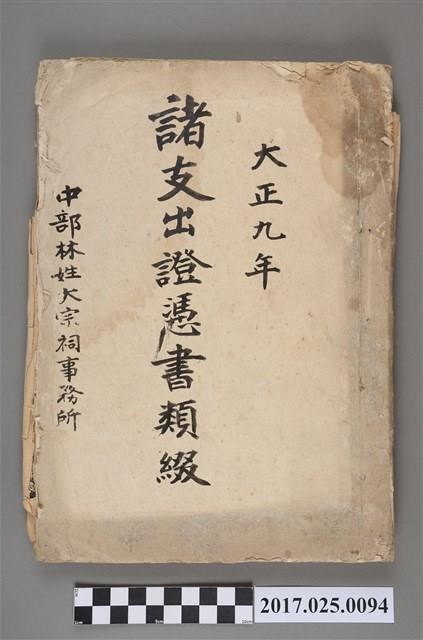 大正九年
諸支出證憑書類綴
中部林姓大宗祠事務所
2017.025.0094